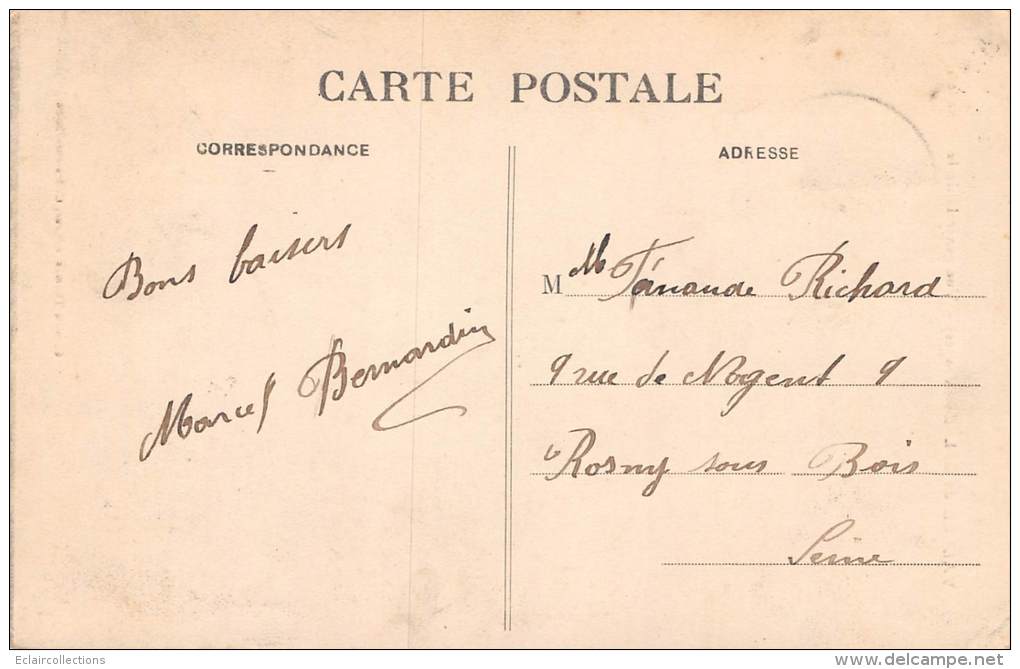 CARTE POSTALE
CORRESPONDANCE
ADRESSE
Bons baisers
Marcel Bernardin
M Richard
9 rue de Nogent 9
Rosny sous Bois
Seine
Eclaircollections
www.delcampe.net